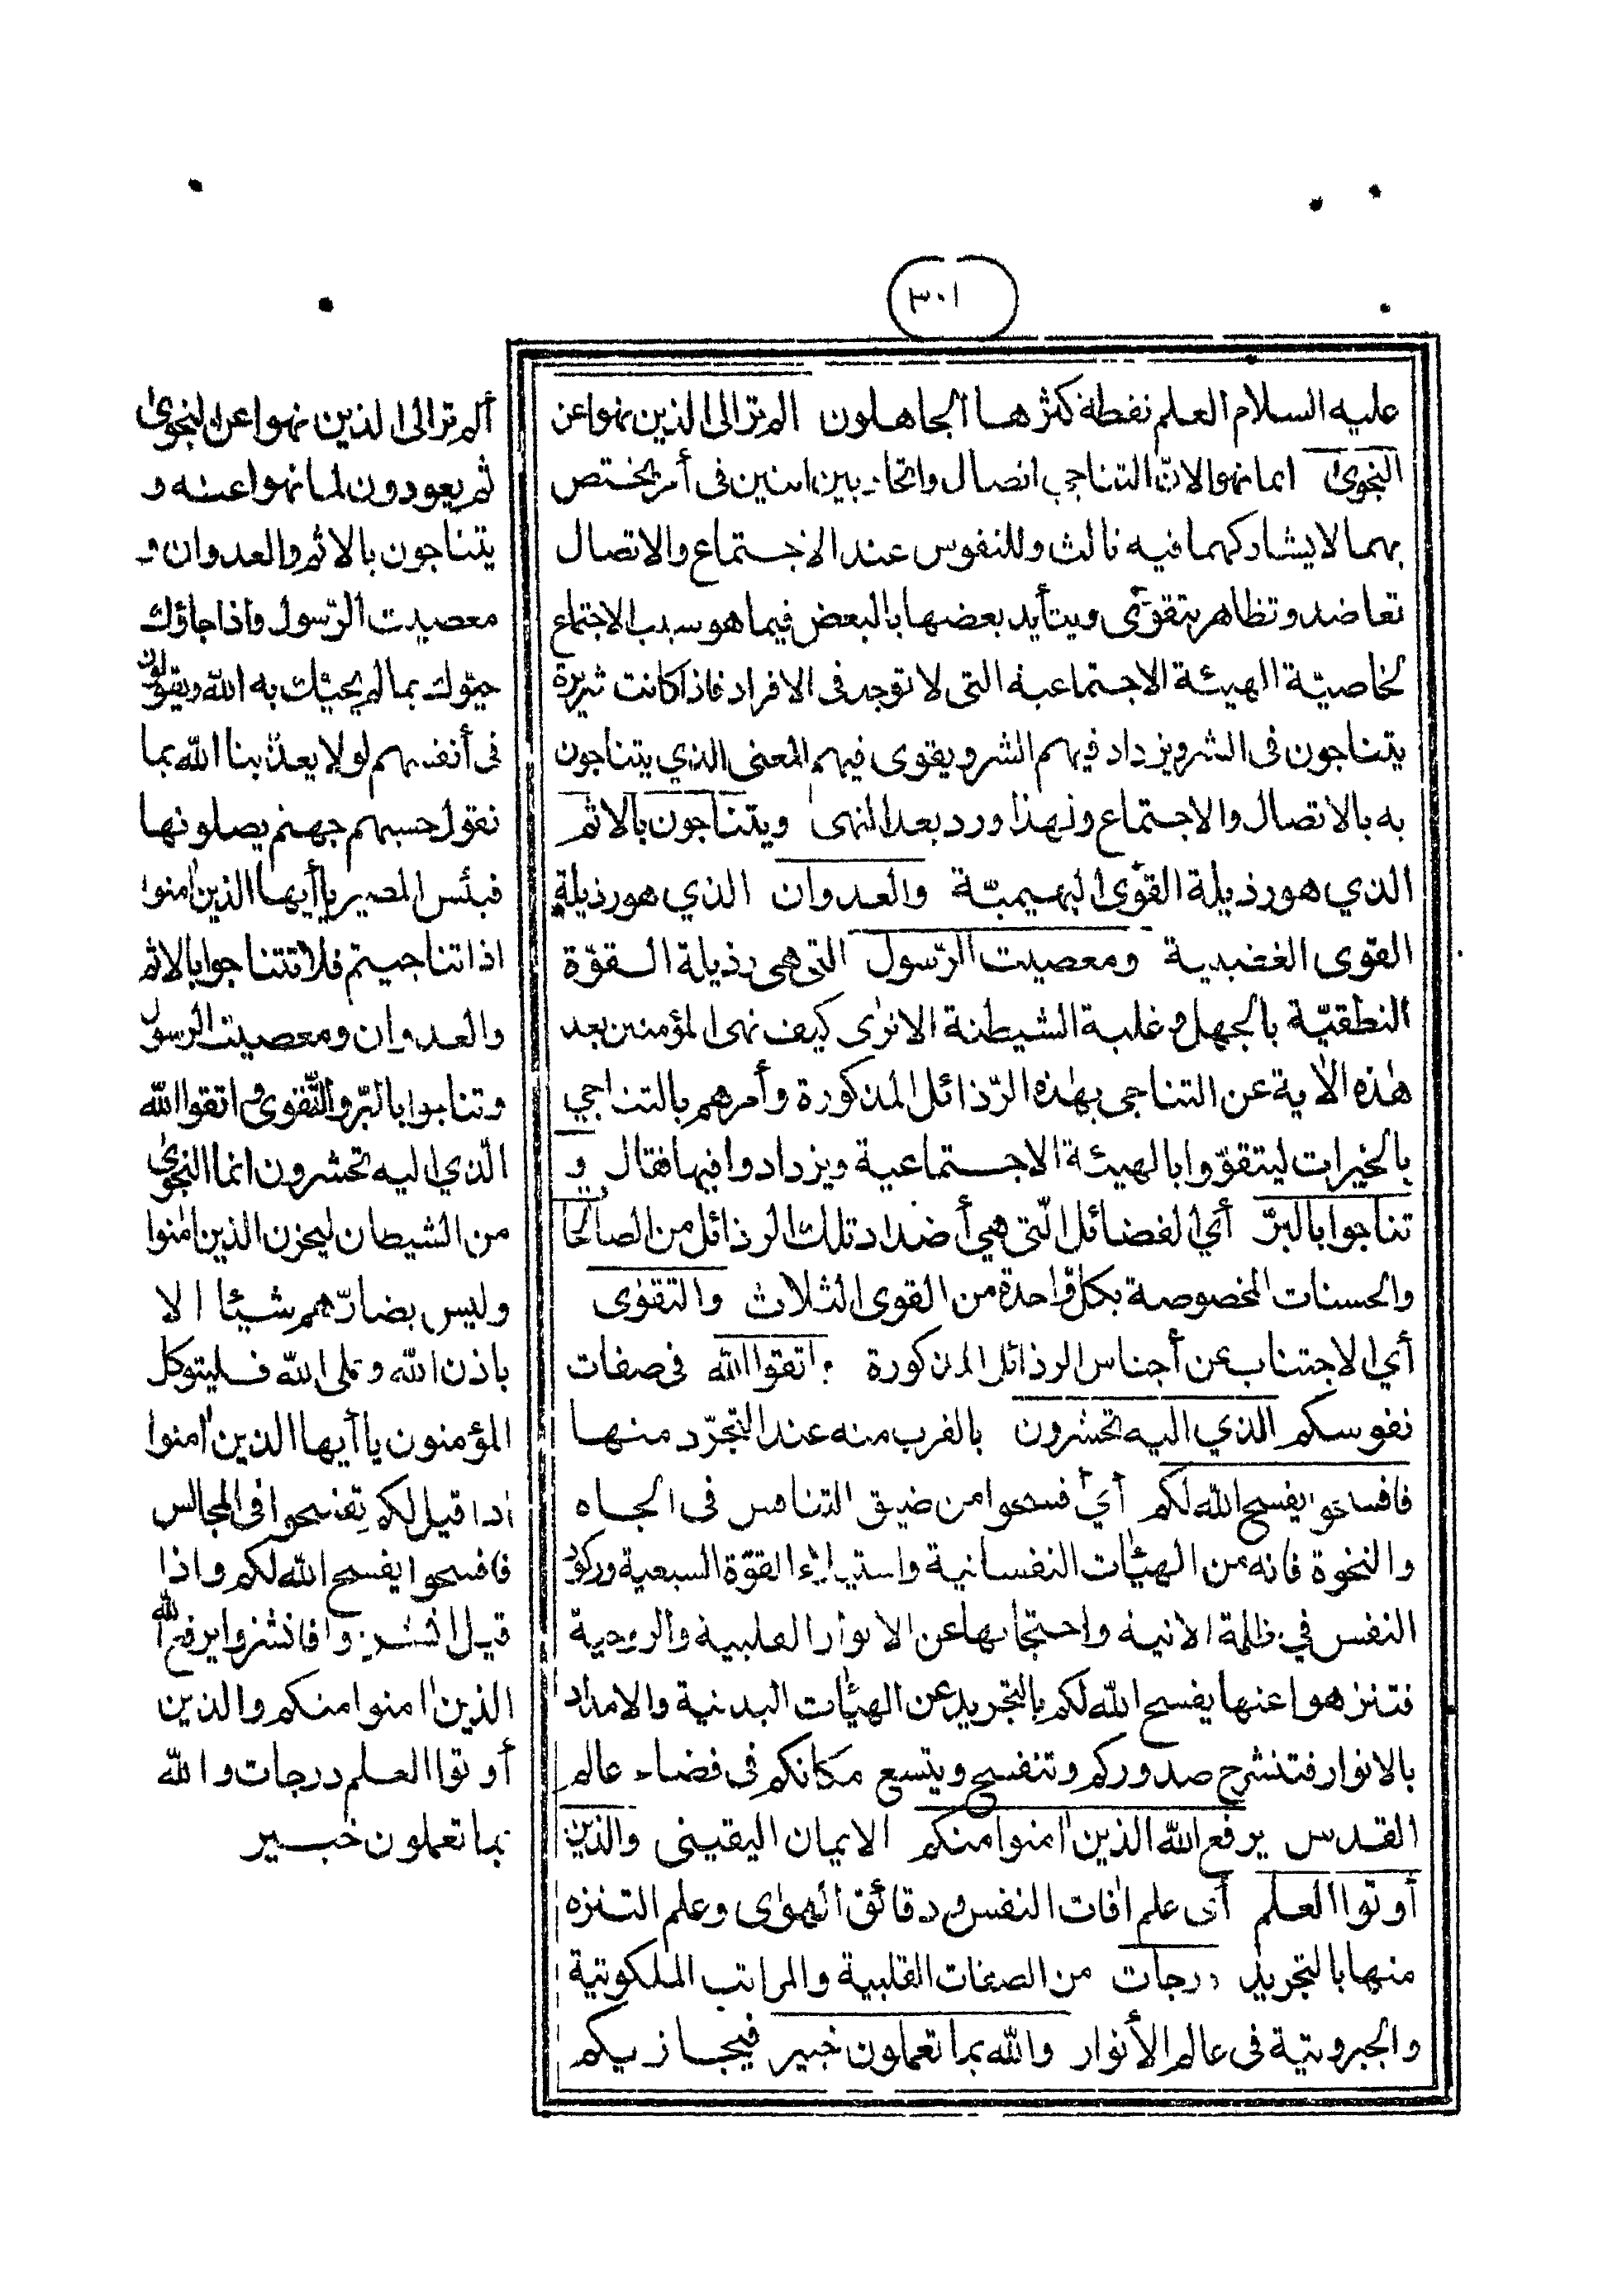 ٣٠١
عليه السلام العلم نقطة كثرها الجاهلون ألم تر الى الذين نهوا عن
النجوى انما نهوا لانّ التناجي اتصال واتحاد بين اثنين في أمر يختص
بهما لا يشاركهما فيه ثالث وللنفوس عند الاجتماع والاتصال
تعاضد وتظاهر يتقوّى ويتأيد بعضها بالبعض فيما هو سبب الاجتماع
لخاصيّة الهيئة الاجتماعية التي لا توجد في الافراد فاذا كانت شريرة
يتناجون في الشر ويزداد فيهم الشر ويقوى فيهم المعنى الذي يتناجون
به بالاتصال والاجتماع ولهذا ورد بعد النهى ويتناجون بالاثم
الذي هو رذيلة القوى البهيميّة والعدوان الذي هو رذيلة
القوى الغضبية ومعصيت الرّسول التي هي رذيلة القوّة
النطقيّة بالجهل وغلبة الشيطنة الا ترى كيف نهى المؤمنين بعد
هذه الآية عن التناجي بهذه الرّذائل المذكورة وأمرهم بالتناجي
بالخيرات ليتقوّوا بالهيئة الاجتماعية ويزدادوا فيها فقال و
تناجوا بالبرّ أي الفضائل الّتي هي أضداد تلك الرذائل من الصالحات
والحسنات المخصوصة بكل واحدة من القوى الثلاث والتقوى
أي الاجتناب عن أجناس الرذائل المذكورة واتقوا الله في صفات
نفوسكم الذي اليه تحشرون بالقرب منه عند التجرّد منها
فافسحوا يفسح الله لكم أي فسحوا من ضيق التنافس في الجاه
والنخوة فانه من الهيئات النفسانية واستيلاء القوّة السبعية وركود
النفس في ظلمة الانية واحتجابها عن الانوار القلبية والروحية
فتنزهوا عنها يفسح الله لكم بالتجريد عن الهيئات البدنية والامداد
بالانوار فتنشرح صدوركم وتنفسح ويتسع مكانكم في فضاء عالم
القدس يرفع الله الذين آمنوا منكم الايمان اليقيني والذين
أوتوا العلم أي علم آفات النفس ودقائق الهوى وعلم التنزه
منها بالتجريد درجات من الصفات القلبية والمراتب الملكوتية
والجبروتية في عالم الأنوار والله بما تعملون خبير فيجازيكم
ألم تر الى الذين نهوا عن النجوى
ثم يعودون لما نهوا عنه و
يتناجون بالاثم والعدوان و
معصيت الرّسول واذا جاؤك
حيّوك بما لم يحيّك به الله ويقولون
في أنفسهم لولا يعذّبنا الله بما
نقول حسبهم جهنم يصلونها
فبئس المصير يا أيها الذين آمنوا
اذا تناجيتم فلا تتناجوا بالاثم
والعدوان ومعصيت الرسول
وتناجوا بالبّر والتّقوى واتقوا الله
الّذي اليه تحشرون انما النجوى
من الشيطان ليحزن الذين آمنوا
وليس بضارّهم شيئا الا
باذن الله وعلى الله فليتوكل
المؤمنون يا أيها الذين آمنوا
اذا قيل لكم تفسحوا في المجالس
فافسحوا يفسح الله لكم واذا
قيل انشزوا فانشزوا يرفع الله
الذين آمنوا منكم والذين
أوتوا العلم درجات والله
بما تعملون خبير